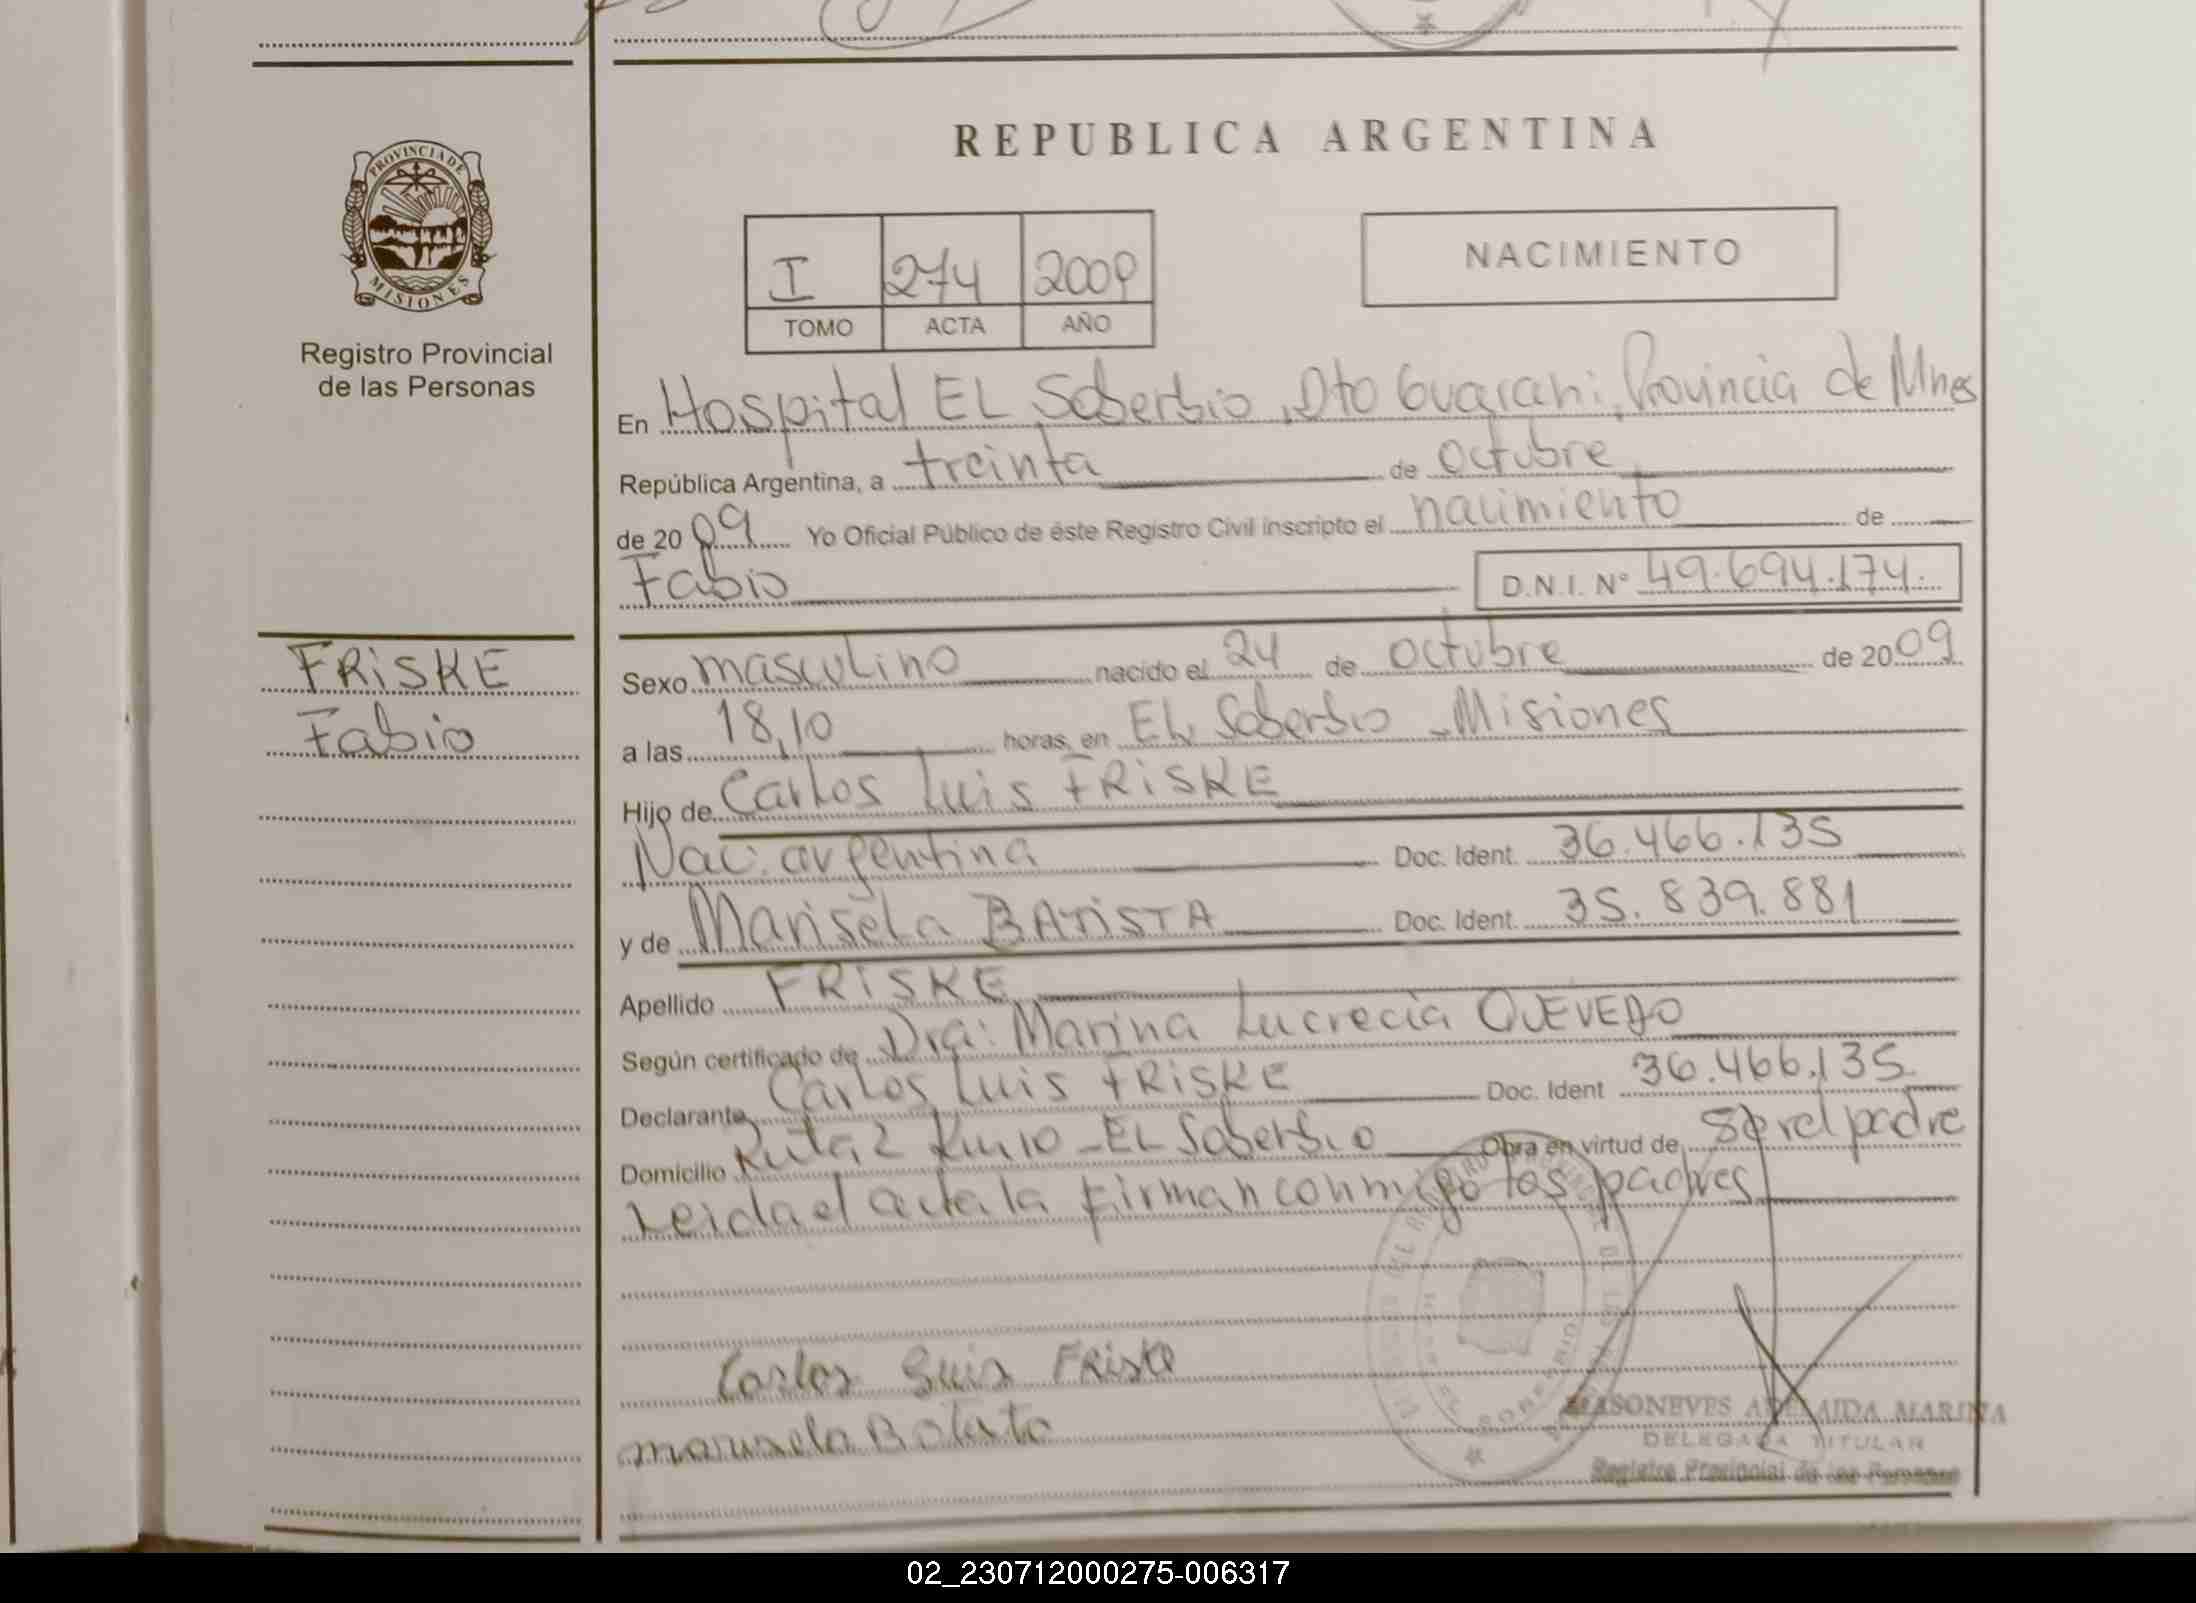 REPUBLICA ARGENTINA
PROVINCIA DE
MISIONES
Registro Provincial
de las Personas
I 274 2009
TOMO ACTA AÑO
NACIMIENTO
En Hospital EL Soberbio, Dto Guarani, Provincia de Mnes
República Argentina, a treinta de octubre
de 2009 Yo Oficial Público de éste Registro Civil inscripto el nacimiento de
Fabio D.N.I. Nº 49.694.174.
FRISKE
Fabio
Sexo masculino nacido el 24 de octubre de 2009
a las 18,10 horas, en EL Soberbio - Misiones
Hijo de Carlos Luis FRISKE
Nac: argentina Doc. Ident. 36.466.135
y de Marisela BATISTA Doc. Ident. 35.839.881
Apellido FRISKE
Según certificado de Dra: Marina Lucrecia QUEVEDO
Declarante Carlos Luis FRISKE Doc. Ident 36.466.135
Domicilio Ruta 2 Km 10 - EL Soberbio Obra en virtud de ser el padre
Leida el acta la firman conmigo los padres
Carlos Luis Friske
marisela Batista
ADELAIDA MARINA
DELEGADA TITULAR
Registro Provincial de las Personas
02_230712000275-006317